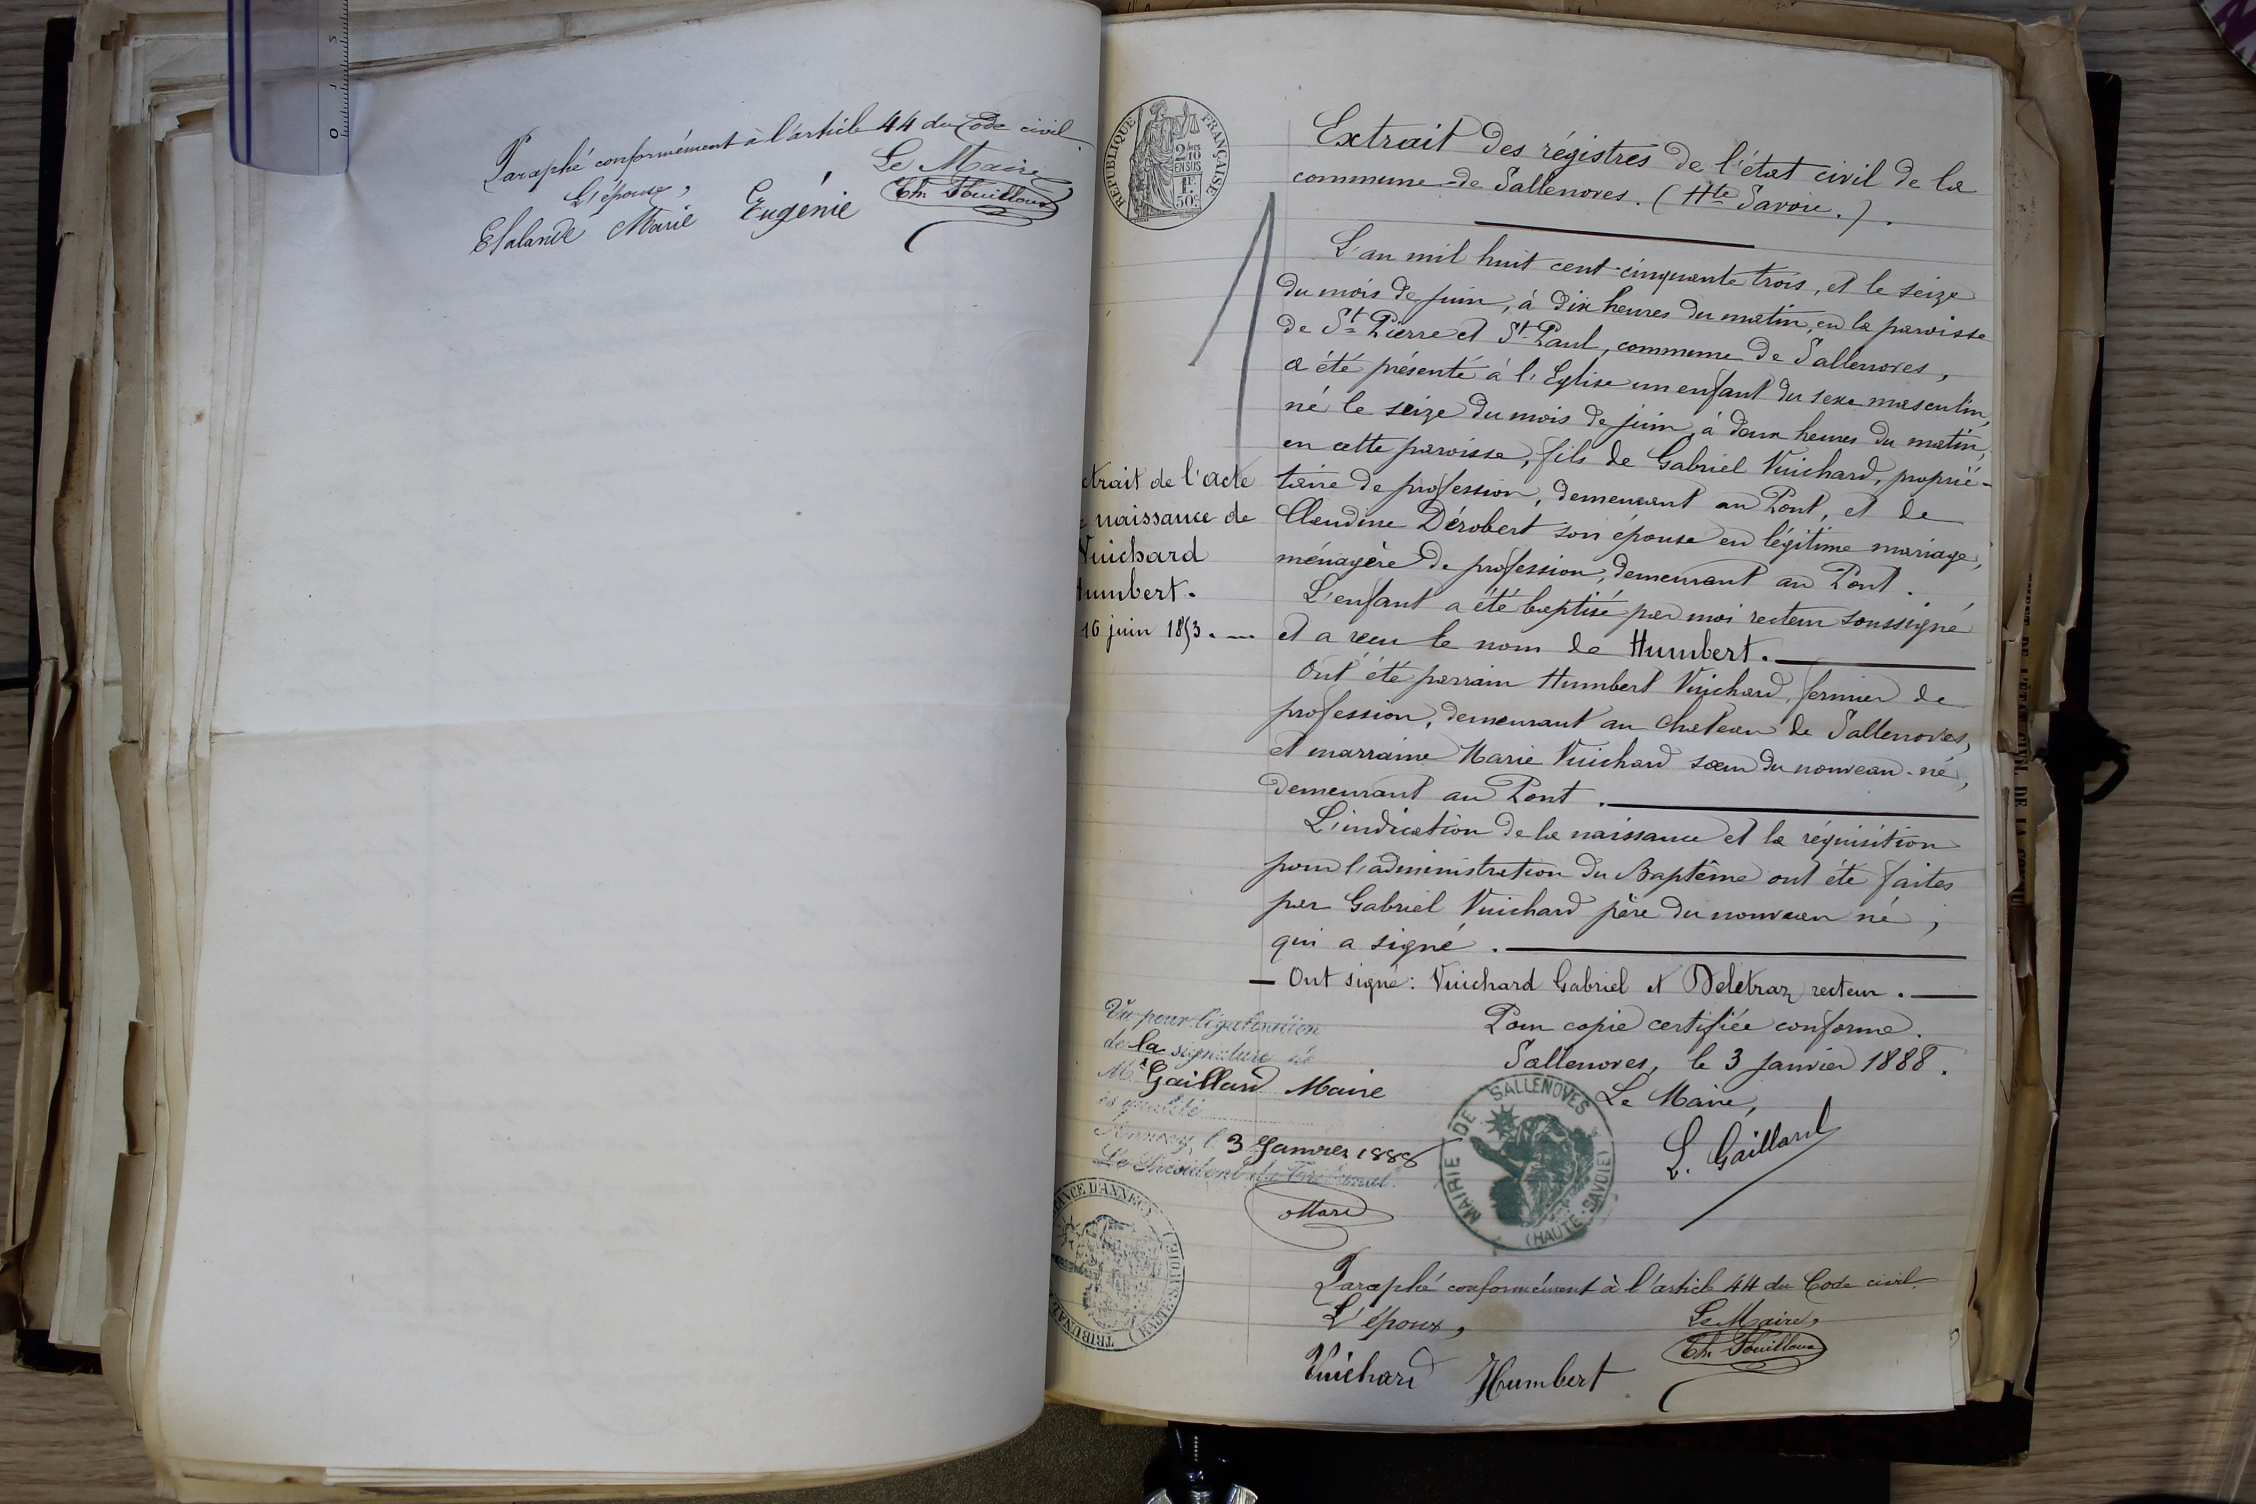 Paraphé conformément à l'article 44 du Code civil.
L'épouse,
Le Maire
Marie Eugénie
Th. Fouilloux
RÉPUBLIQUE FRANÇAISE
2/10 EN SUS
1F. 50c
Extrait des régistres de l'état civil de la
commune de Sallenoves. (Hte Savoie.).
L'an mil huit cent cinquante trois, et le seize
du mois de juin, à dix heures du matin, en la paroisse
de St Pierre et St Paul, commune de Sallenoves,
a été présenté à l'Eglise un enfant du sexe masculin,
né le seize du mois de juin, à deux heures du matin,
en cette paroisse, fils de Gabriel Vuichard, proprié-
taire de profession, demeurant au Pont, et de
Claudine Dérobert son épouse en légitime mariage,
ménagère de profession, demeurant au Pont.
L'enfant a été baptisé par moi recteur soussigné
et a reçu le nom de Humbert.
Ont été parrain Humbert Vuichard, fermier de
profession, demeurant au chateau de Sallenoves,
et marraine Marie Vuichard sœur du nouveau-né,
demeurant au Pont.
L'indication de la naissance et la réquisition
pour l'administration du Baptême ont été faites
par Gabriel Vuichard père du nouveau né,
qui a signé.
— Ont signé: Vuichard Gabriel et Delétraz recteur. —
ctrait de l'acte
naissance de
Vuichard
Humbert.
16 juin 1853. —
Pour copie certifiée conforme.
Sallenoves, le 3 Janvier 1888.
Le Maire,
L. Gaillard
Vu pour légalisation
de la signature de
Mr Gaillard Maire
ès qualité
Annecy, l 3 Janvier 1888
Le Président du Tribunal.
MAIRIE DE SALLENOVES
(HAUTE-SAVOIE)
TRIBUNAL
ANCE D'ANNECY
(HAUTE-SAVOIE)
Paraphé conformément à l'article 44 du Code civil.
L'époux,
Le Maire,
Th. Fouilloux
Vuichard Humbert